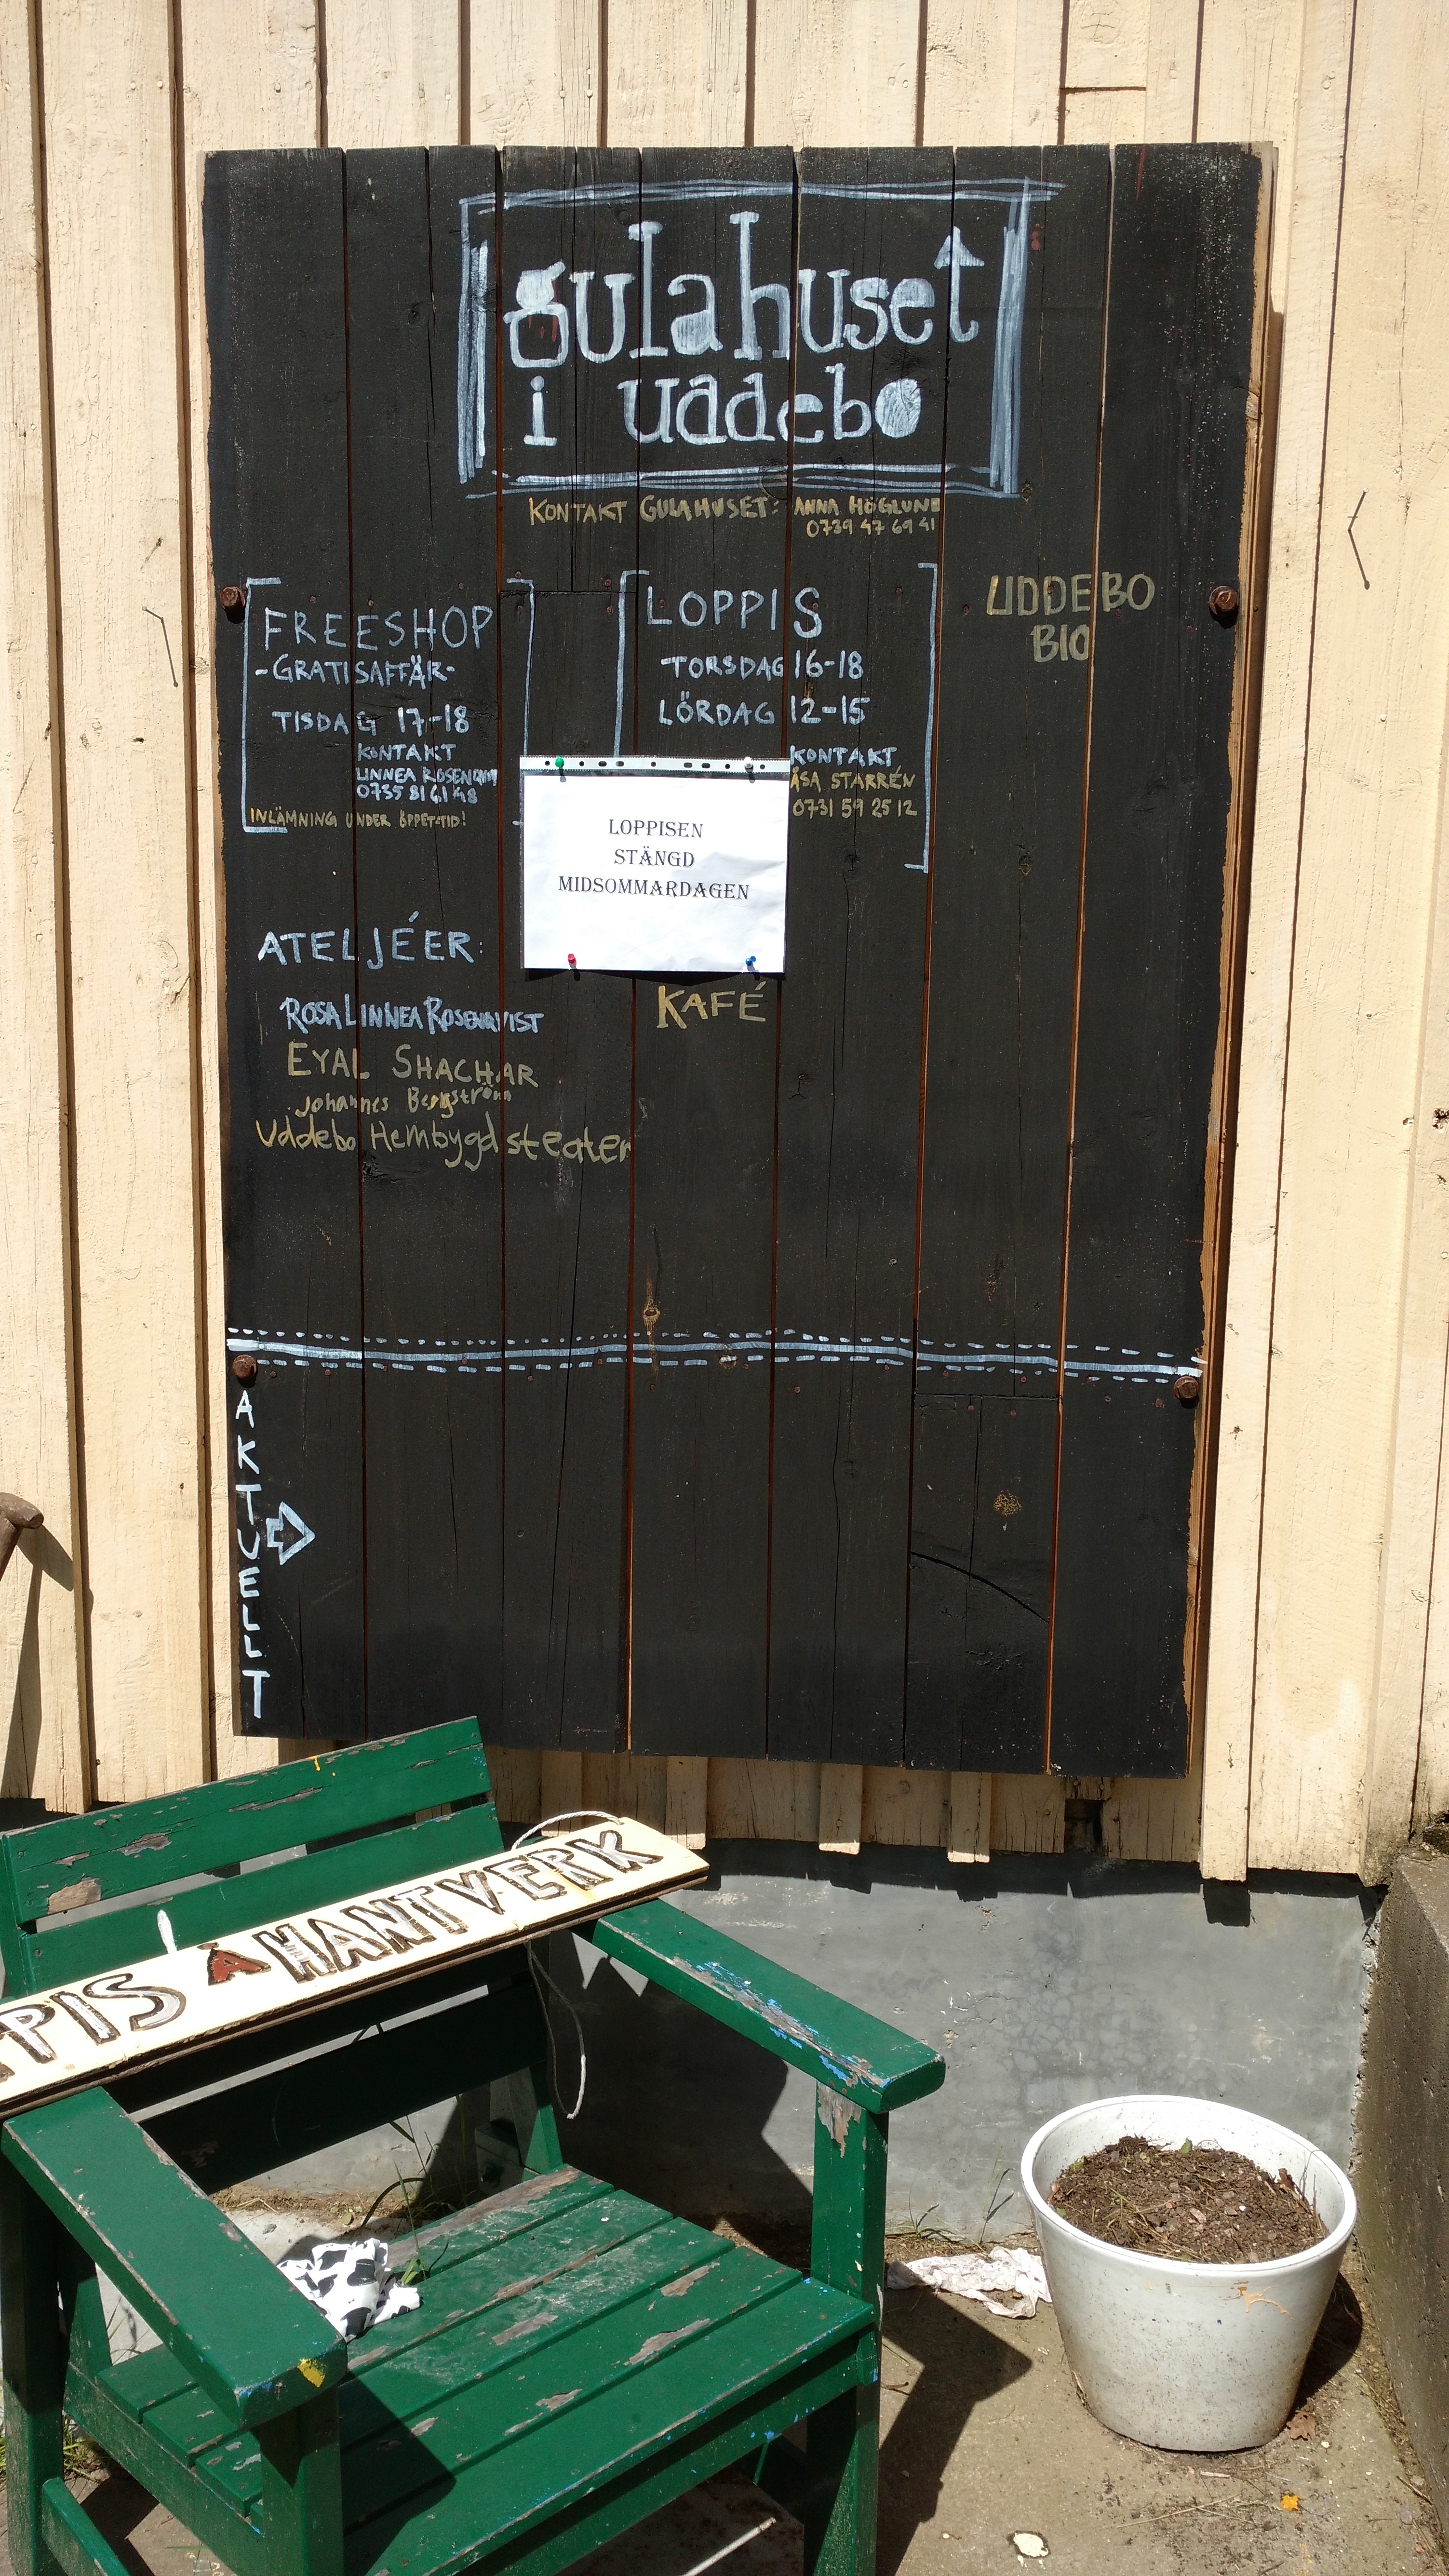 gulahuset
i uddebo
KONTAKT GULAHUSET: ANNA HÖGLUND
0739 47 69 41
FREESHOP
-GRATISAFFÄR-
TISDAG 17-18
KONTAKT
LINNEA ROSENQVIST
0735 81 61 48
INLÄMNING UNDER ÖPPET-TID!
LOPPIS
TORSDAG 16-18
LÖRDAG 12-15
KONTAKT
ÅSA STARRÉN
0731 59 25 12
UDDEBO
BIO
LOPPISEN
STÄNGD
MIDSOMMARDAGEN
ATELJÉER:
ROSA LINNEA ROSENQVIST
EYAL SHACHAR
Johannes Bergström
Uddebo Hembygdsteater
KAFÉ
AKTUELLT
PIS Å HANTVERK